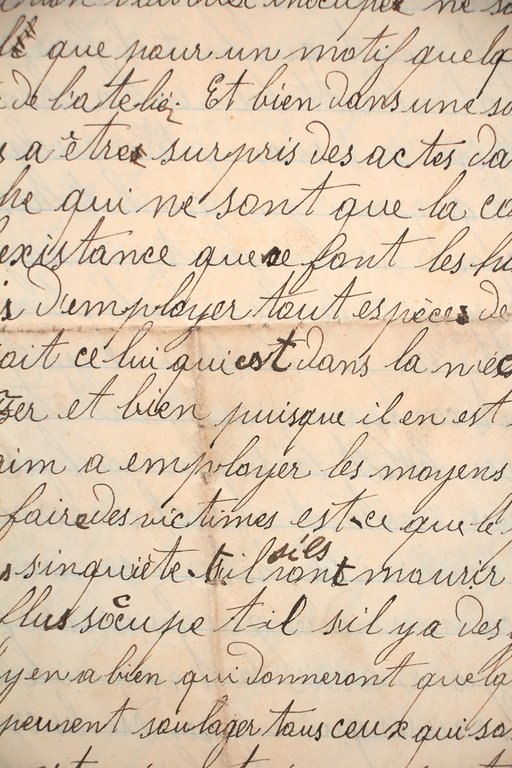 que pour un motif quelq
de l'atelier Et bien dans une so
a êtres surpris des actes da
he qui ne sont que la co
existance que se font les h
d'employer tout espèces de
oit celui qui est dans la nec
zer et bien puisque il en est
aim a employer les moyens
faire des victimes est-ce que le
s'inquiète-til s'ils iront mourir
flus soccupe til s'il y a des
y en a bien qui donneront quelq
peuvent soulager tous ceux qui so